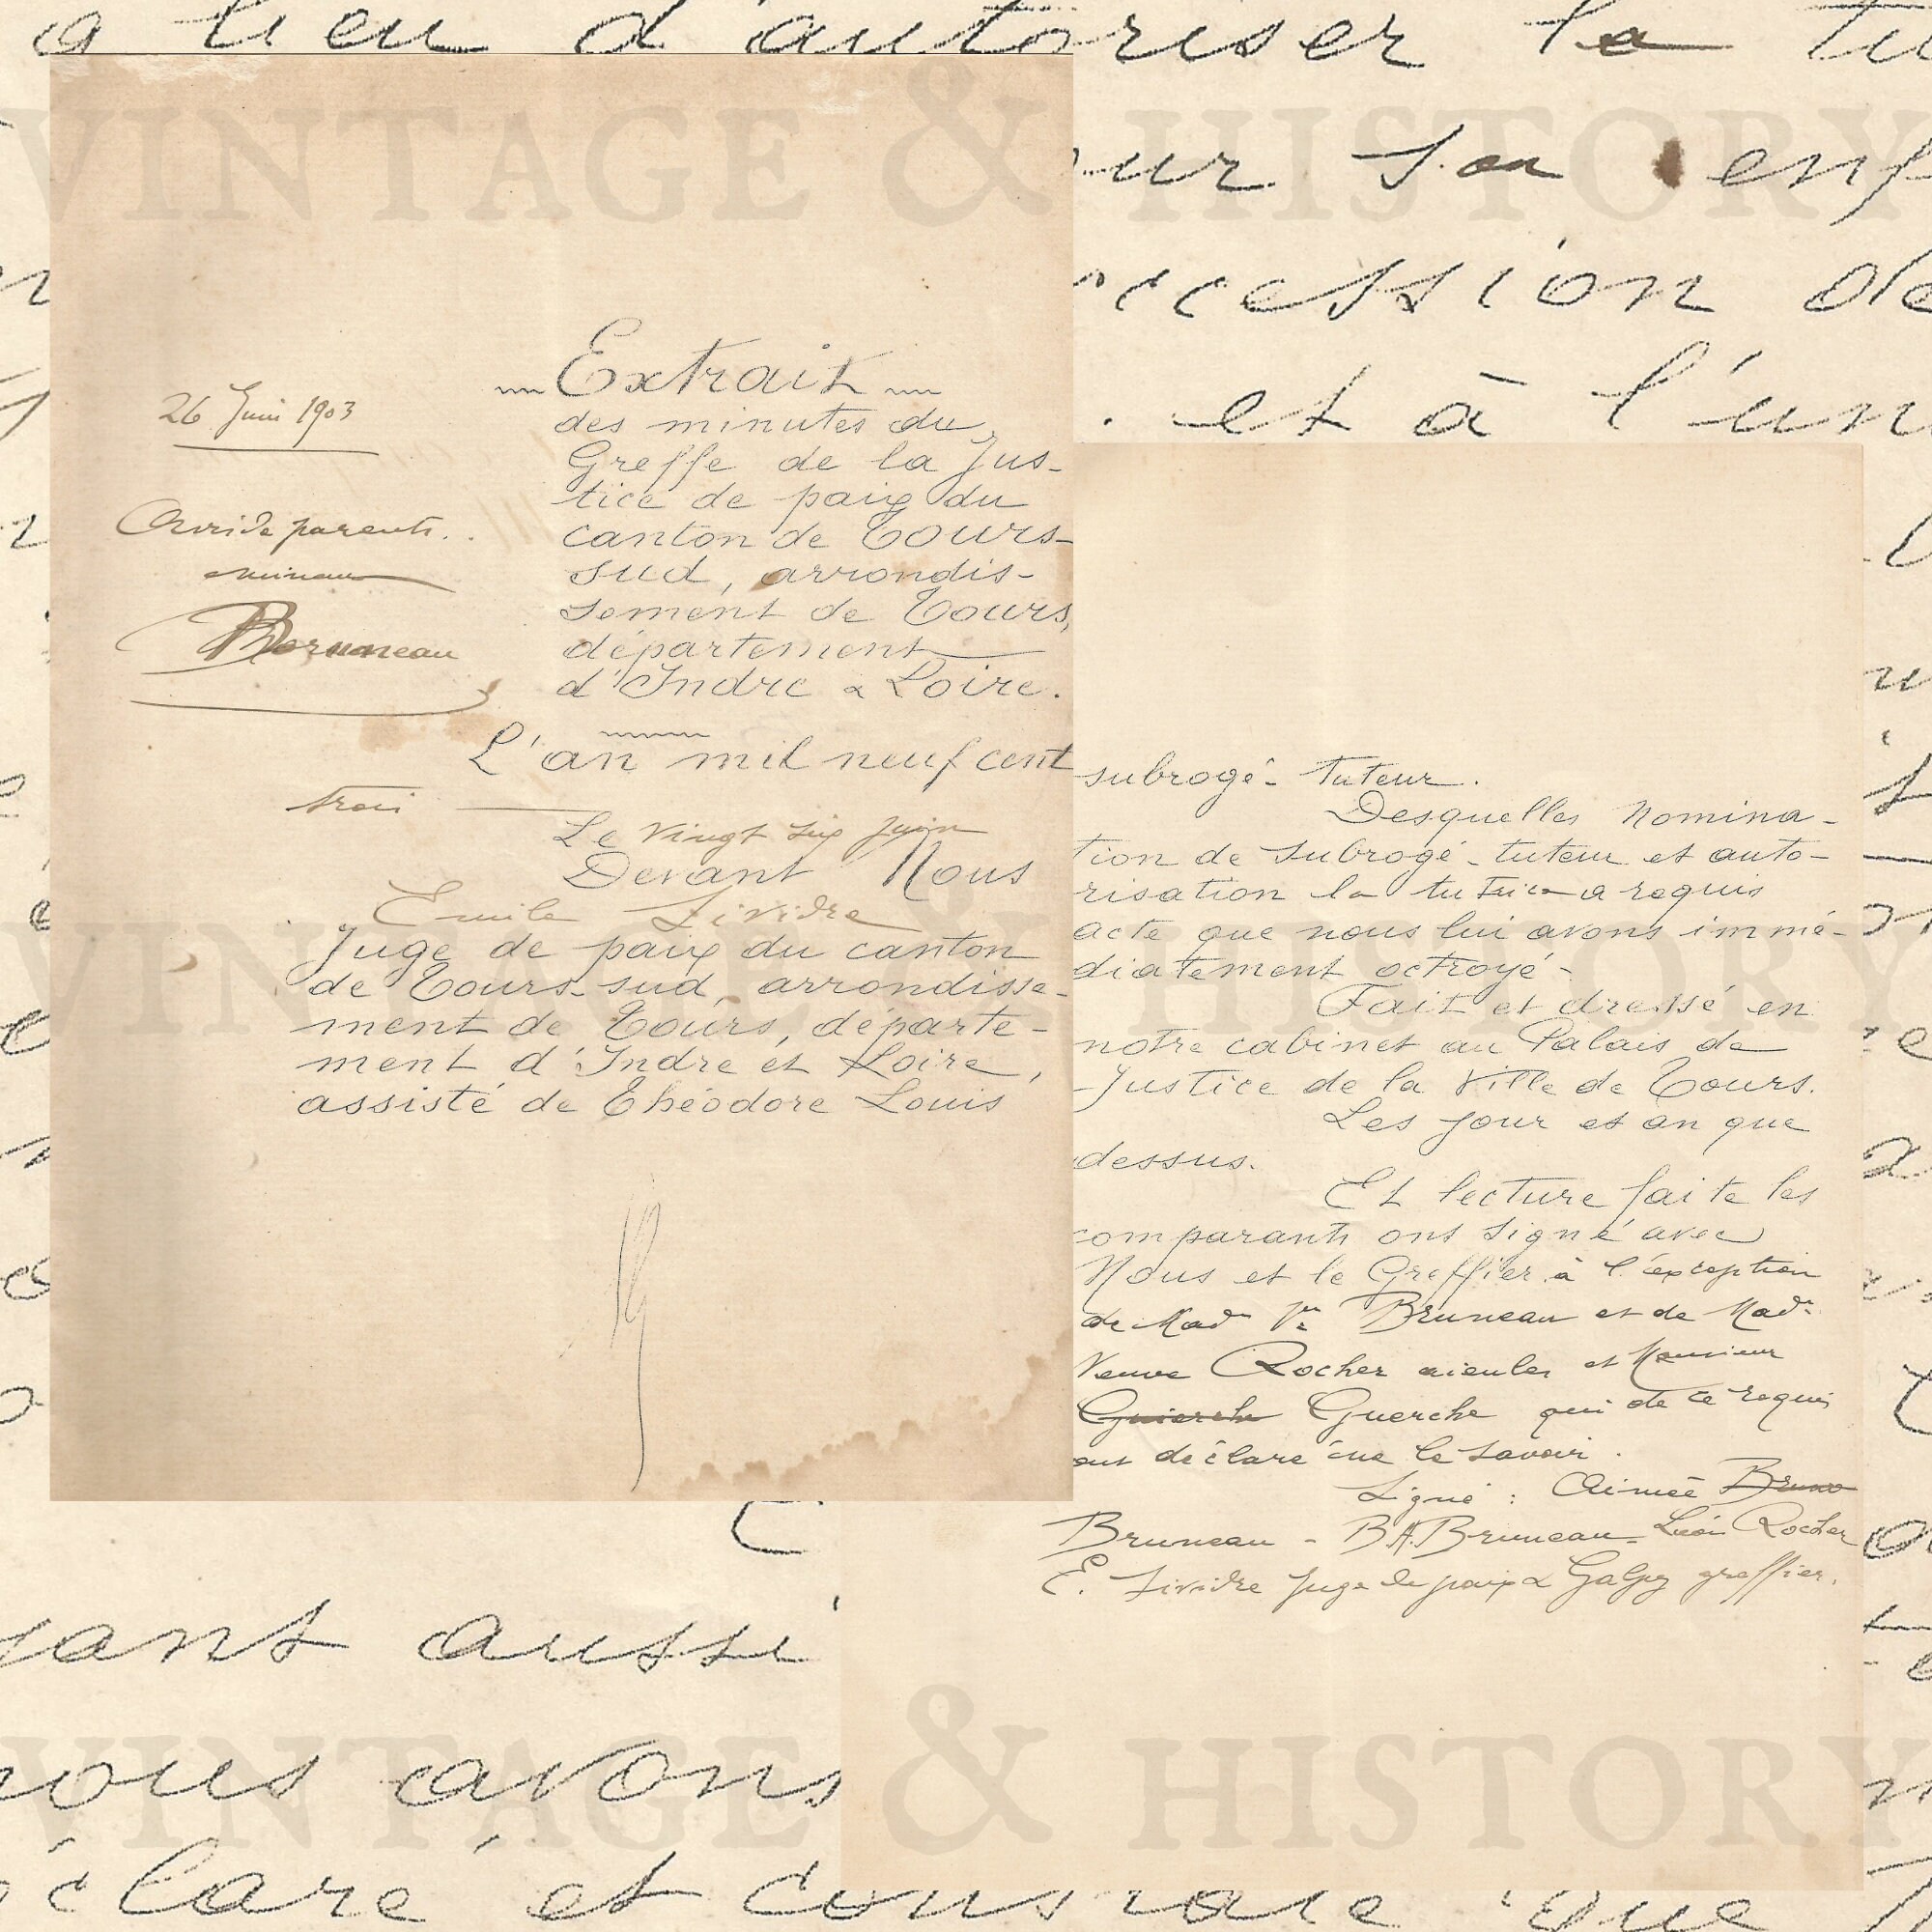 a lieu d'autoriser la
VINTAGE & HISTORY
26 Juin 1903
Avis de parents.
mineurs
Bruneau
Extrait
des minutes du
Greffe de la Jus-
tice de paix du
canton de Tours-
sud, arrondis-
sement de Tours,
département
d'Indre & Loire.
L'an mil neuf cent
trois
Le vingt six juin
Devant Nous
Emile
Juge de paix du canton
de Tours-sud, arrondisse-
ment de Tours, départe-
ment d'Indre et Loire,
assisté de Théodore Louis
sa
ccession de
et à l'un
subrogé-tuteur.
Desquelles nomina-
tion de subrogé-tuteur et auto-
risation la tutrice a requis
acte que nous lui avons immé-
diatement octroyé-
Fait et dressé en
notre cabinet au Palais de
Justice de la ville de Tours.
Les jour et an que
dessus.
Et lecture faite les
comparants ont signé avec
Nous et le Greffier à l'exception
de Mad. Vve Bruneau et de Made
Veuve Rocher aieules et Monsieur
Guierche Guerche qui de ce requis
ont déclaré ne le savoir.
Signé : Aimée Bruno
Bruneau - B A. Bruneau - Léon Rocher
E. juge de paix & greffier.
VINTAGE & HISTORY
sant aussi
nous avons
VINTAGE & HISTORY
éclaré et que